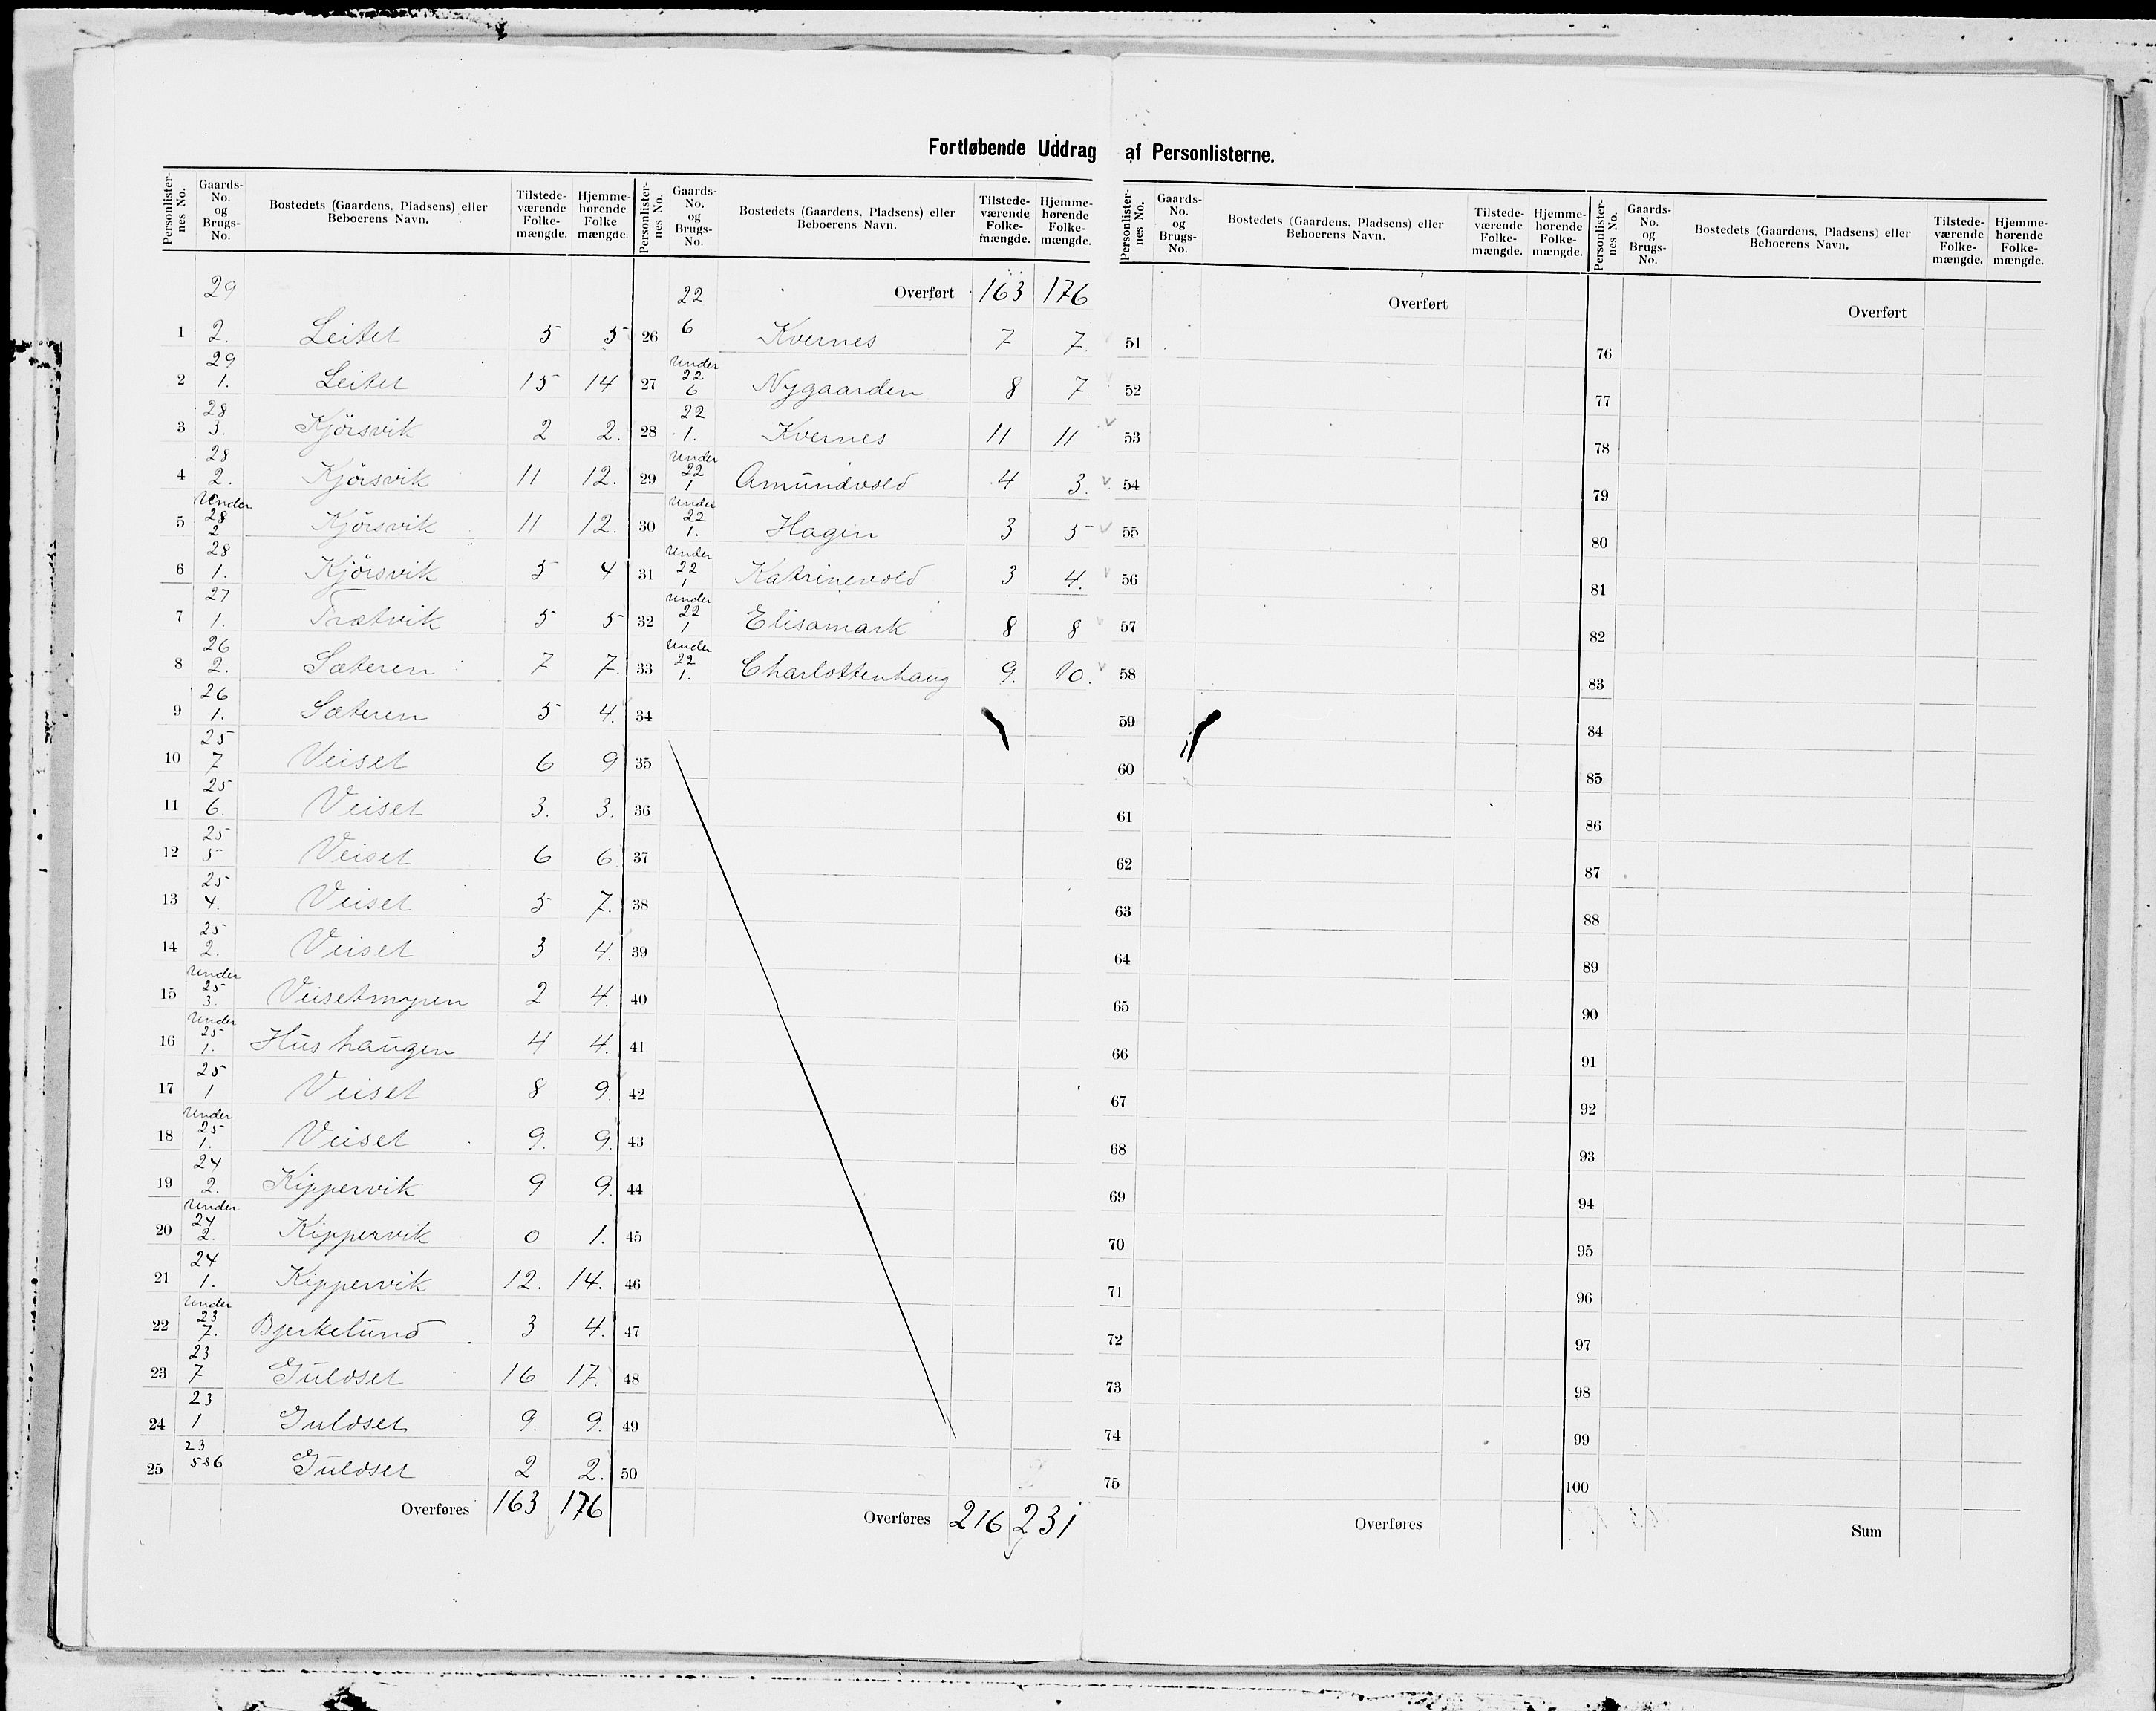 Fortløbende Uddrag af Personlisterne.
Personlister-nes No. | Gaards-No. og Brugs-No. | Bostedets (Gaardens, Pladsens) eller Beboerens Navn. | Tilstede-værende Folke-mængde. | Hjemme-hørende Folke mængde.
1 | 29 2. | Leitet | 5 | 5
2 | 29 1. | Leitet | 15 | 14
3 | 28 3. | Kjörsvik | 2 | 2.
4 | 28 2. | Kjörsvik | 11 | 12.
5 | Under 28 2 | Kjörsvik | 11 | 12.
6 | 28 1. | Kjörsvik | 5 | 4
7 | 27 1. | Trætvik | 5 | 5
8 | 26 2. | Sæteren | 7 | 7.
9 | 26 1. | Sæteren | 5 | 4.
10 | 25 7 | Veiset | 6 | 9
11 | 25 6. | Veiset | 3. | 3.
12 | 25 5 | Veiset | 6 | 6
13 | 25 4. | Veiset | 5 | 7.
14 | 25 2. | Veiset | 3 | 4.
15 | Under 25 3. | Veisetmyren | 2 | 4.
16 | Under 25 1. | Hushaugen | 4 | 4.
17 | 25 1 | Veiset | 8 | 9.
18 | Under 25 1. | Veiset | 9. | 9.
19 | 24 2. | Kippervik | 9 | 9.
20 | Under 24 2. | Kippervik | 0 | 1.
21 | 24 1. | Kippervik | 12. | 14.
22 | Under 23 7. | Bjerkelund | 3 | 4.
23 | 23 7 | Guldset | 16 | 17.
24 | 23 1 | Guldset | 9. | 9.
25 | 23 5&6 | Guldset | 2 | 2.
Overføres | 163 | 176
Personlister-nes No. | Gaards-No. og Brugs-No. | Bostedets (Gaardens, Pladsens) eller Beboerens Navn. | Tilstede-værende Folke-mængde. | Hjemme-hørende Folke-mængde.
Overført | 163 | 176
26 | 22 6 | Kvernes | 7 | 7.
27 | Under 22 6 | Nygaarden | 8 | 7.
28 | 22 1. | Kvernes | 11 | 11
29 | Under 22 1 | Amundvold | 4 | 3.
30 | Under 22 1. | Hagen | 3 | 5
31 | Under 22 1 | Katrinevold | 3 | 4.
32 | Under 22 1 | Elisamark | 8 | 8
33 | Under 22 1. | Charlottenhaug | 9. | 10.
34
35
36
37
38
39
40
41
42
43
44
45
46
47
48
49
50
Overføres | 216 | 231
Personlister-nes No. | Gaards-No. og Brugs-No. | Bostedets (Gaardens, Pladsens) eller Beboerens Navn. | Tilstede-værende Folke-mængde. | Hjemme-hørende Folke-mængde.
Overført
51
52
53
54
55
56
57
58
59
60
61
62
63
64
65
66
67
68
69
70
71
72
73
74
75
Overføres
Personlister-nes No. | Gaards-No. og Brugs-No. | Bostedets (Gaardens, Pladsens) eller Beboerens Navn. | Tilstede-værende Folke-mængde. | Hjemme-hørende Folke-mængde.
Overført
76
77
78
79
80
81
82
83
84
85
86
87
88
89
90
91
92
93
94
95
96
97
98
99
100
Sum